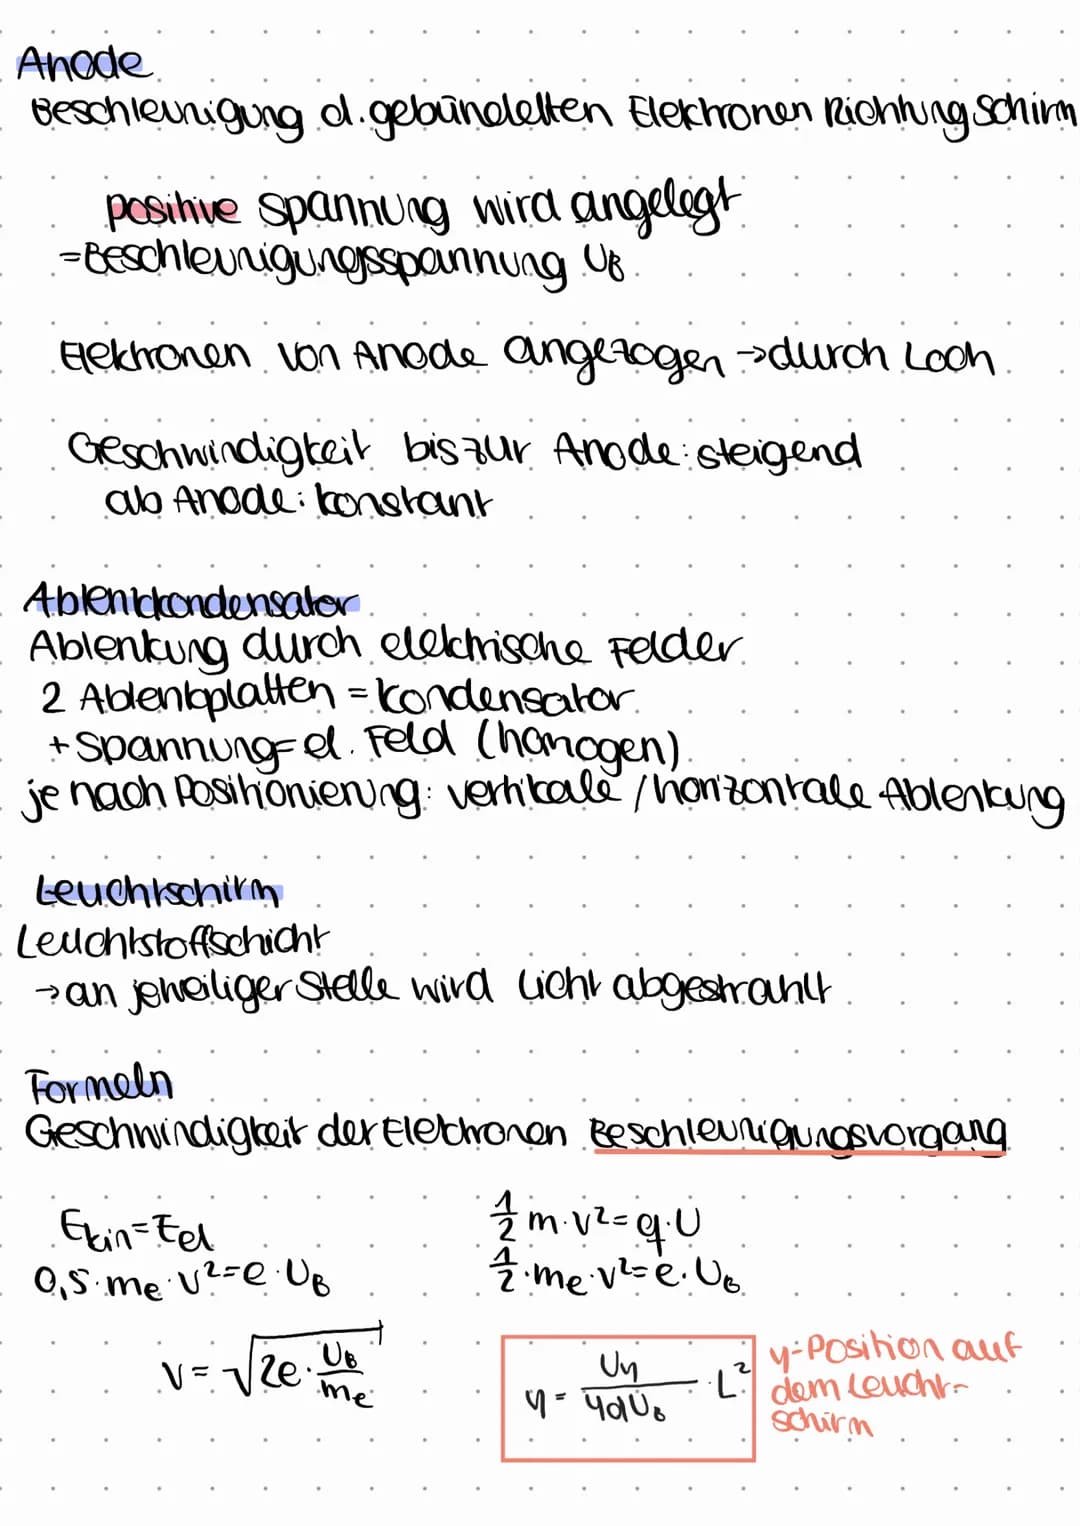 Anode
Beschleunigung d. gebündelten Elektronen Richtung Schirm
positive Spannung wird angelegt
=Beschleunigungsspannung UB
Elektronen von Anode angezogen →durch Loch
Geschwindigkeit bis zur Anode: steigend
ab Anode: konstant
Ablenkkondensator
Ablenkung durch elektrische Felder
2 Ablenkplatten = Kondensator
+ Spannung= el. Feld (homogen)
je nach Positionierung: vertikale / horizontale Ablenkung
Leuchtschirm
Leuchtstoffschicht
→ an jeweiliger Stelle wird Licht abgestrahlt
Formeln
Geschwindigkeit der Elektronen Beschleunigungsvorgang
Ekin = Eel
0,5·me·v²=e·UB
v = √(2e·UB/me)
1/2 m·v²= q·U
1/2·me·v²= e·UB
y = Uy/(4dUB) ·L²
y-Position auf
dem Leucht-
schirm